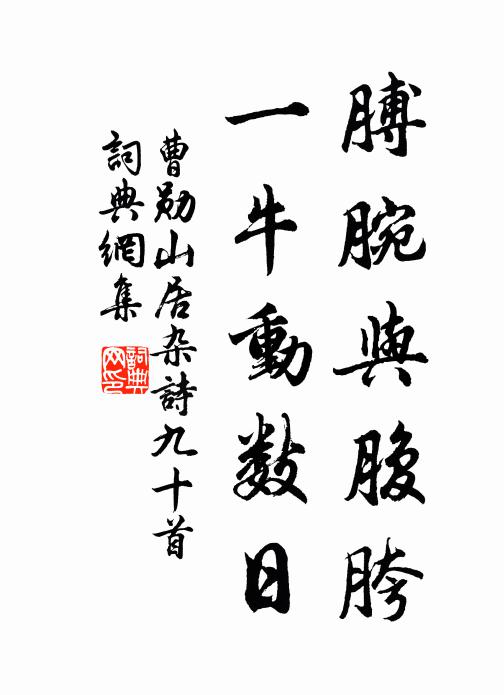 膊腕與腹胯
一牛動數日
曹勛山居杂詩九十首
詞典網集
詞典網印